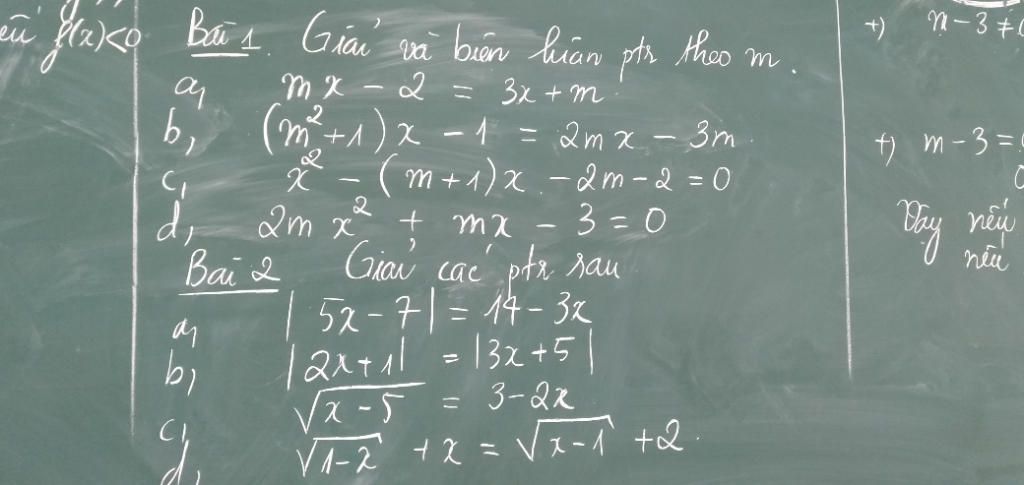 f(x)<0
Bài 1. Giải và biện luận ptr theo m.
a, mx - 2 = 3x + m
b, (m²+1)x - 1 = 2mx - 3m
c, x² - (m+1)x - 2m - 2 = 0
d, 2mx² + mx - 3 = 0
Bài 2 Giải các ptr sau
a, |5x - 7| = 14 - 3x
b, |2x+1| = |3x+5|
c, √(x-5) = 3-2x
d, √(1-x) + x = √(x-1) + 2.
+) m - 3 ≠
+) m - 3 =
Vậy nếu
nếu